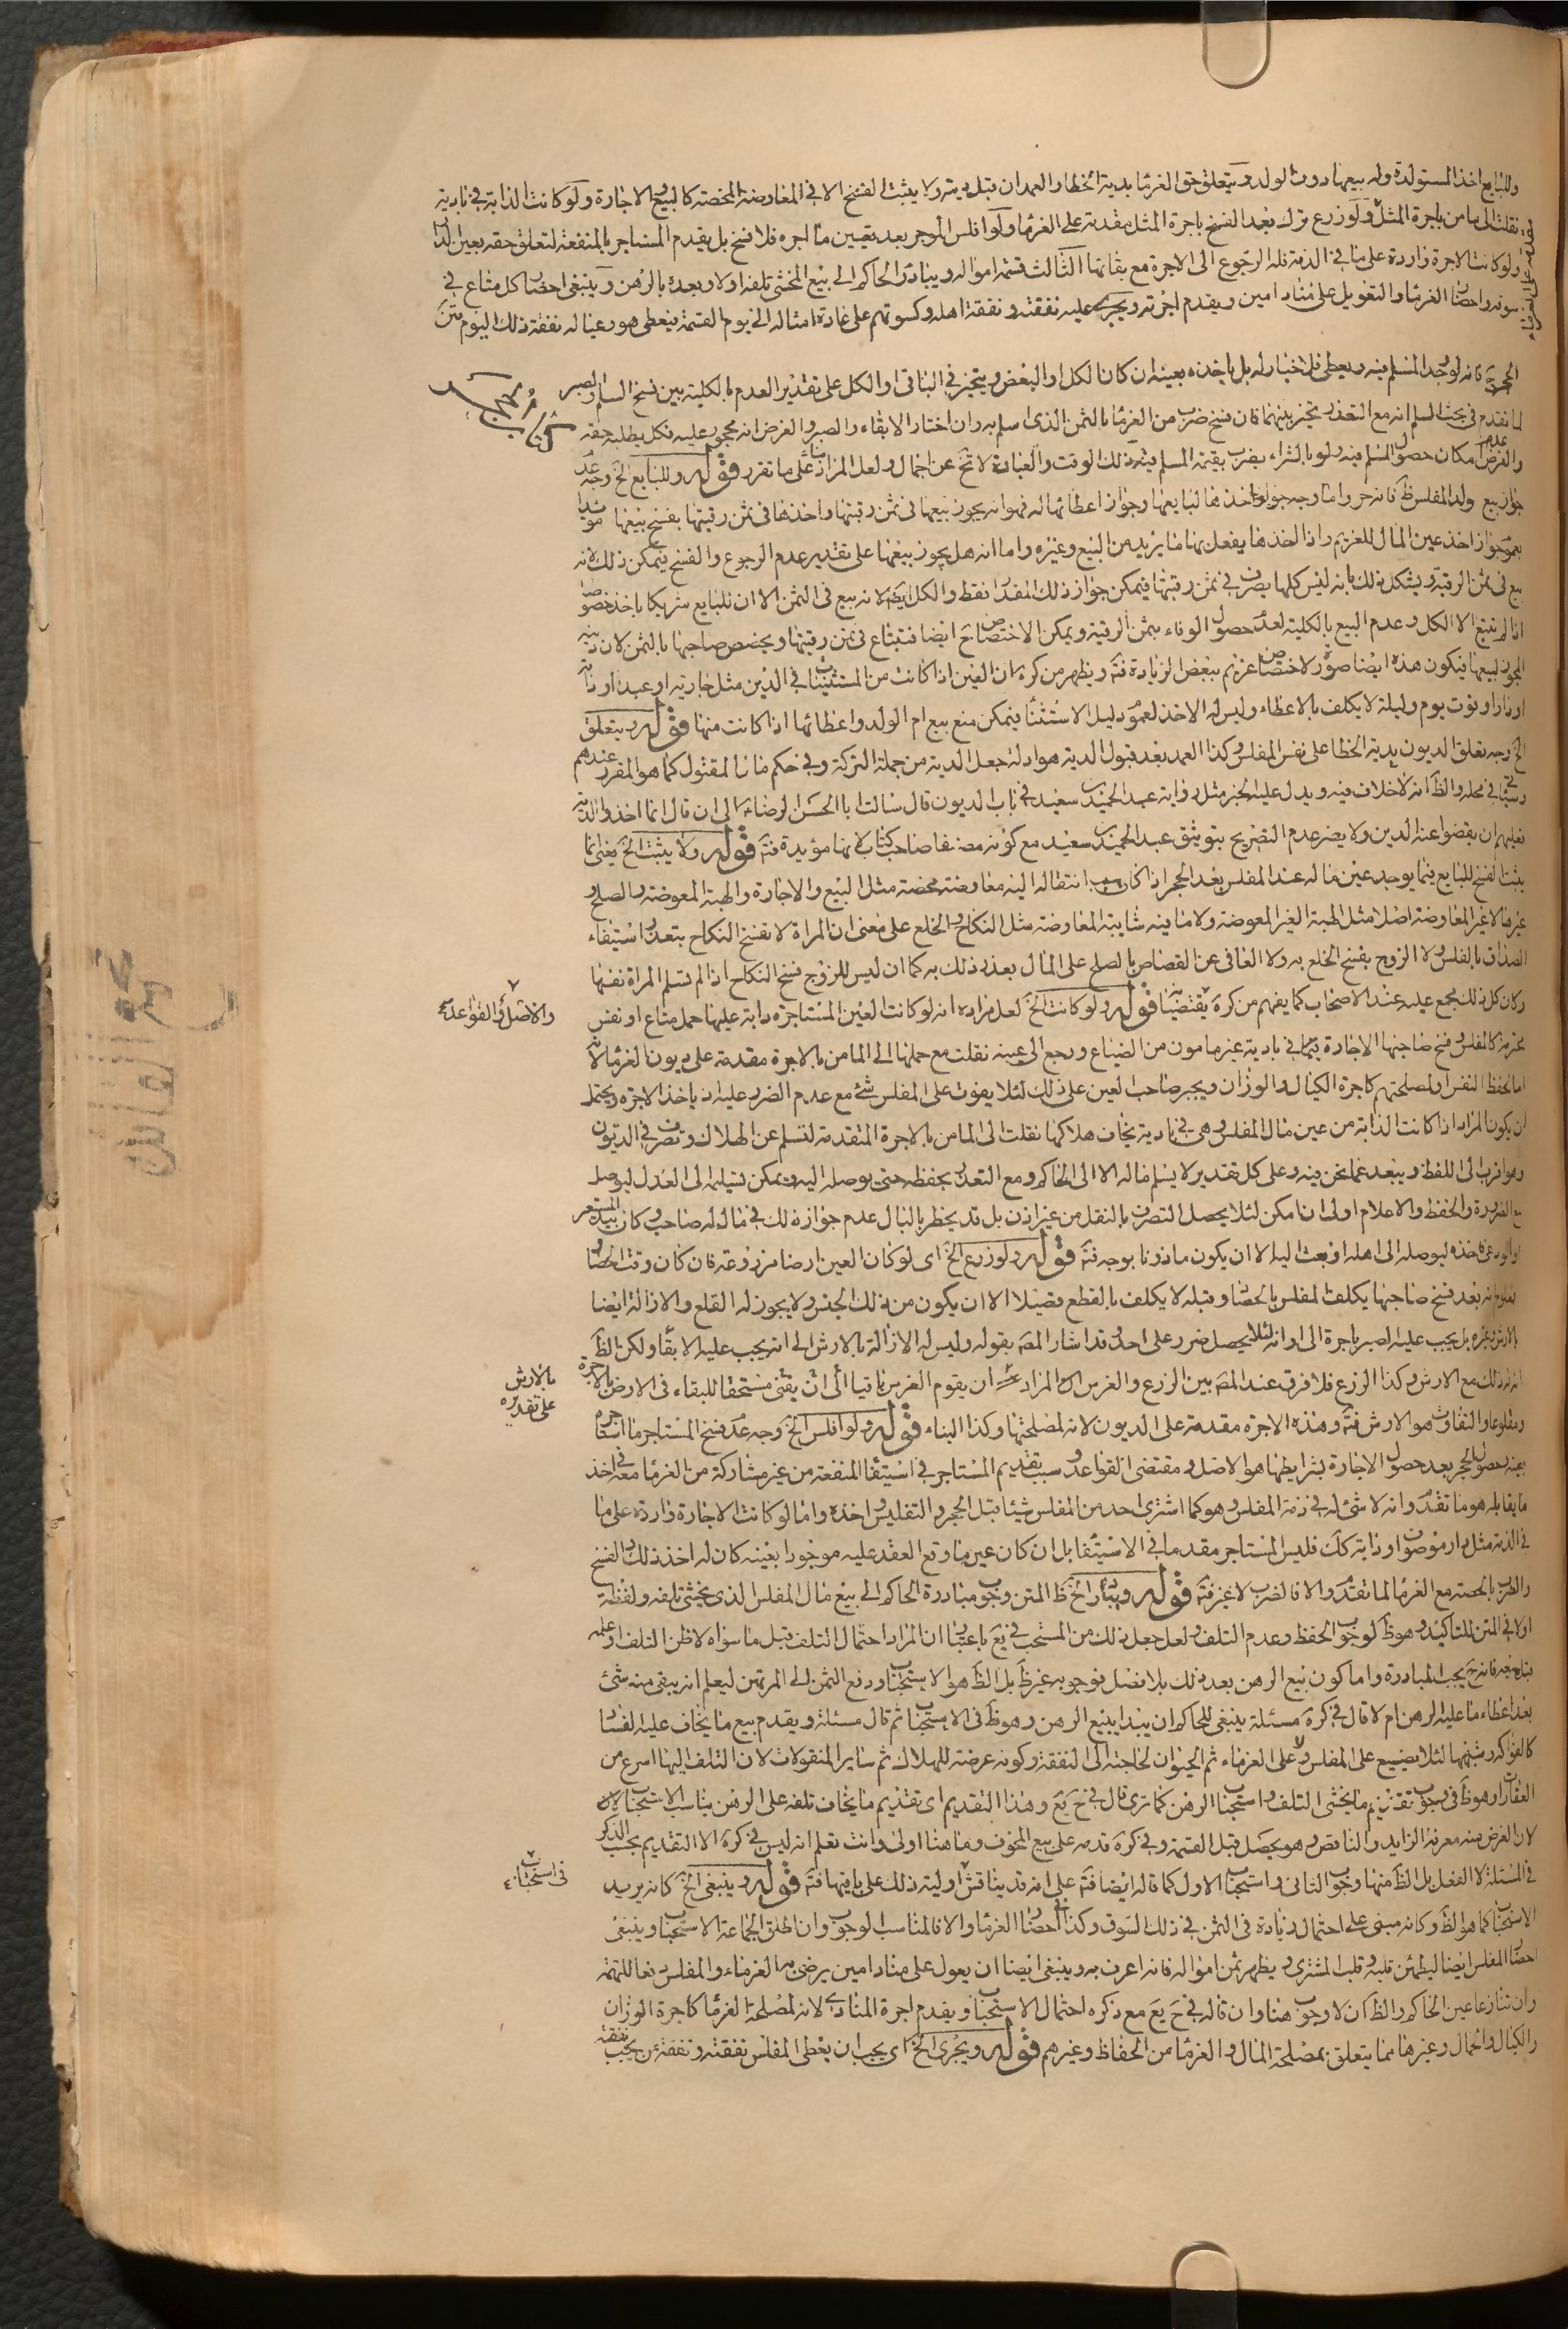 وللبايع اخذ المستولدة وله بيعها دون الولد ويتعلق حق الغرما بدية الخطا والعمد ان قبل ديته ولا يثبت الفسخ الا في المعاوضة المحضة كالبيع والاجارة ولو كانت الدابة في بادية
نقلت الى مامن باجرة المثل ولو زرع ترك بعد الفسخ باجرة المثل مقدمة على الغرما ولو افلس الموجر بعد تعيين ما اجره فلا فسخ بل يقدم المستاجر بالمنفعة لتعلق حقه بعين
ولو كانت الاجرة واردة على ما في الذمة فله الرجوع الى الاجرة مع بقائها الثالث قسمة امواله ويبادر الحاكم الى بيع المخشي تلفه اولا وبعده بالرهن وينبغي احضار كل متاع في
سوقه واحضار الغرما والتعويل على مناد امين ويقدم اجرته ويجري عليه نفقته ونفقة اهله وكسوتهم على عادة امثاله الى يوم القسمة فيعطى هو وعياله نفقة ذلك اليوم متن
فانه لو وجد المسلم فيه ويعطى فلا خيار له بل ياخذه بعينه ان كان الكل او البعض ويتخير في الباقي او الكل على تقدير العدم بالكلية بين فسخ السلم والصبر
لما تقدم في بحث السلم انه مع التعذر يتخير بينهما فان فسخ ضرب من الغرما بالثمن الذي اسلم به وان اختار الابقاء والصبر والغرض انه محجور عليه فكل يطلب حقه
والفرض عدم امكان حصول المسلم فيه ولو بالشراء يضرب بقيمة المسلم فيه ذلك الوقت والعبارة لا تخ عن اجمال ولعل المراد ما على ما تقرر قوله وللبايع الخ وجه عدم
جواز بيع ولد المفلس ظ فانه حر واما وجه جواز اخذها لبايعها وجواز اعطائها له فهو انه يجوز بيعها في ثمن رقبتها واخذها في ثمن رقبتها بفسخ بيعها
بعموم جواز اخذ عين المال للغريم واذا اخذها يفعل بها ما يريد من البيع وغيره واما انه هل يجوز بيعها على تقدير عدم الرجوع والفسخ يمكن ذلك لانه
بيع في ثمن الرقبة ويشكل ذلك بانه ليس كلها يصرف في ثمن رقبتها فيمكن جواز ذلك المقدار فقط والكل ايضا لانه بيع في الثمن الا ان للبايع شريكا
اذا لم تبع الا الكل وعدم البيع بالكلية لعدم حصول الوفاء بثمن الرقبة ويمكن الاختصاص ح ايضا فتباع في ثمن رقبتها ويخصص صاحبها بالثمن لان
لبيعها فيكون هذه ايضا صورة لاختصاص غريم ببعض الزيادة فت ويظهر من كره ان العين اذا كانت من المستثنيات في الدين مثل جاريته او عبده او دابته
او داره او قوت يوم وليلة لا يكلف بالاعطاء وليس له الاخذ لعموم دليل الاستثناء فيمكن منع بيع ام الولد واعطائها اذا كانت منها قوله ويتعلق
الخ وجه تعلق الديون بدية الخطا على نفس المفلس وكذا العمد بعد قبول الدية هو ادلة جعل الدية من جملة التركة وفي حكم مال المقتول كما هو المقرر عندهم
في محله والظ انه لا خلاف فيه ويدل عليه الخبر مثل رواية عبد الحميد بن سعيد في باب الديون قال سالت ابا الحسن الرضا ع الى ان قال انما اخذوا الدية
فعليهم ان يقضوا عنه الدين ولا يضر عدم التصريح بتوثيق عبد الحميد بن سعيد مع كونه مصنفا صاحب كتاب لانها مؤيدة فت قوله ولا يثبت الخ يعني انما
يثبت الفسخ للبايع فيما يوجد عين ماله عند المفلس بعد الحجر اذا كان سبب انتقاله اليه معاوضة محضة مثل البيع والاجارة والهبة المعوضة والصلح و
غيرها لا غير المعاوضة اصلا مثل الهبة الغير المعوضة ولا ما فيه شايبة المعاوضة مثل النكاح والخلع على معنى ان المراة لا تفسخ النكاح بتعذر استيفاء
الصداق بالفلس ولا الزوج يفسخ الخلع به ولا العافي عن القصاص بالصلح على المال بعذر ذلك به كما ان ليس للزوج فسخ النكاح اذا لم تسلم المراة نفسها
وكان كل ذلك مجمع عليه عند الاصحاب كما يفهم من كره قوله ولو كانت الخ لعل مراده انه لو كانت العين المستاجرة دابة عليها حمل متاع او نفس
محترمة كالمفلس وفسخ صاحبها الاجارة في بادية غير مامون من الضياع ورجع الى عينه نقلت مع حملها الى المامن بالاجرة مقدمة على ديون الغرما لانه
اما لحفظ النفس او لمصلحتهم كاجرة الكيال والوزان ويجبر صاحب العين على ذلك لئلا يفوت على المفلس شئ مع عدم الضرر عليه اذ ياخذ الاجرة ويحتمل
ان يكون المراد اذا كانت الدابة من عين مال المفلس وهي في بادية يخاف هلاكها نقلت الى المامن بالاجرة المتقدمة لتسلم عن الهلاك وتصرف في الديون
وهو اقرب الى اللفظ ويبعد عما نحن فيه وعلى كل تقدير لا يسلم ماله الا الى الحاكم ومع التعذر يحفظه حتى يوصله اليه ويمكن تسليمه الى العدل ليوصل
مع الضرورة والحفظ والاعلام اولى ان امكن لئلا يحصل التصرف بالنقل من غير اذن بل قد يخطر بالبال عدم جواز ذلك في مال له صاحب وكان بيد المستعير
او الودعي اخذه ليوصله الى اهله او بعث اليه الا ان يكون ماذونا بوجه فت قوله ولو زرع الخ اى لو كان العين ارضا مزروعة فان كان وقت الحصاد
بعد فسخ صاحبها يكلف المفلس بالحصاد وقبله لا يكلف بالقطع فصيلا الا ان يكون من ذلك الجنس ولا يجوز له القلع والازالة ايضا
بالارش وغيره بل يجب عليه الصبر باجرة الى اوانه لئلا يحصل ضرر على احد وقد اشار المص بقوله وليس له الازالة بالارش الى انه يجب عليه الابقاء ولكن الظ
ان له ذلك مع الارش وكذا الزرع فلا فرق عند المص بين الزرع والغرس المراد ان يقوم الغرس باقيا الى ان يفنى مستحقا للبقاء في الارض بالاجرة
ومقلوعا والتفاوت هو الارش فت وهذه الاجرة مقدمة على الديون لانه لمصلحتها وكذا البناء قوله ولو افلس الخ وجه عدم فسخ المستاجر ما استاجره
بعينه بحصول الحجر بعد حصول الاجارة بشرايطها هو الاصل ومقتضى القواعد وسبب تقديم المستاجر في استيفاء المنفعة من غير مشاركة من الغرما معه في اخذ
ما يقابله هو ما تقدم وانه لا شئ له في ذمة المفلس وهو كما اشترى احد من المفلس شيئا قبل الحجر والتفليس واخذه واما لو كانت الاجارة واردة على ما
في الذمة مثل دار موصوف او دابة كك فليس المستاجر مقدما في الاستيفا بل ان كان عين ما وقع العقد عليه موجودا بعينه كان له اخذ ذلك والفسخ
والضرب بالحصة مع الغرما لما تقدم والا فالضرب لا غير فت قوله ويبادر الخ ظ المتن وجوب مبادرة الحاكم الى بيع مال المفلس الذي يخشى تلفه ولفظة
اولا في المتن للتاكيد وهو ظ لوجوب الحفظ وعدم التلف ولعل جعل ذلك من المستحب في يع باعتبار ان المراد احتمال التلف قبل ما سواه لا ظن التلف وعلمه
فانه ح يجب المبادرة واما كون بيع الرهن بعد ذلك بلا فصل فوجوبه غير ظ بل الظ هو الاستحباب ودفع الثمن الى المرتهن ليعلم انه يبقى منه شئ
بعد اعطاء ما عليه الرهن ام لا قال في كره مسئلة ينبغي للحاكم ان يبدا ببيع الرهن وهو ظ في الاستحباب ثم قال مسئلة ويقدم بيع ما يخاف عليه الفساد
كالفواكه وشبهها لئلا يضيع على المفلس ولا على الغرماء ثم الحيوان لحاجته الى النفقة وكونه عرضة للهلاك ثم ساير المنقولات لان التلف اليها اسرع من
العقار وهو ظ في وجوب تقديم ما يخشى التلف واستحباب الرهن كما ترى قال في ح يع وهذا التقديم اى تقديم ما يخاف تلفه على الرهن يناسب الاستحباب
لان الغرض منه معرفة الزايد والناقص وهو يحصل قبل القسمة وفي كره قدمه على بيع المخوف وما هنا اولى وانت تعلم انه ليس في كره الا التقديم بحسب الذكر
في المسئلة لا الفعل بل الظ منها وجوب الثاني واستحباب الاول كما قاله ايضا فت على انه قد يناقش اولية ذلك على باقيها فت قوله وينبغي الخ كانه يريد
الاستحباب كما هو الظ وكانه مبنى على احتمال زيادة في الثمن في ذلك السوق وكذا احضار الغرما والا فالمناسب الوجوب وان اطلق الجماعة الاستحباب وينبغي
احضار المفلس ايضا ليطمئن قلبه وقلب المشترى ويظهر ثمن امواله فانه اعرف به وينبغي ايضا ان يعول على مناد امين يرضى به الغرماء والمفلس دفعا للتهمة
وان تنازعا عين الحاكم والظ ان لا وجوب هنا وان قاله في ح يع مع ذكره احتمال الاستحباب ويقدم اجرة المنادي لانه لمصلحة الغرما كاجرة الوزان
والكيال والحمال وغيرها مما يتعلق بمصلحة المال والغرما من الحفاظ وغيرهم قوله ويجرى الخ اى يجب ان يعطى المفلس نفقته ونفقة من يجب نفقته
والاصل في القواعد
بالارش
على تقديره
في استحباب